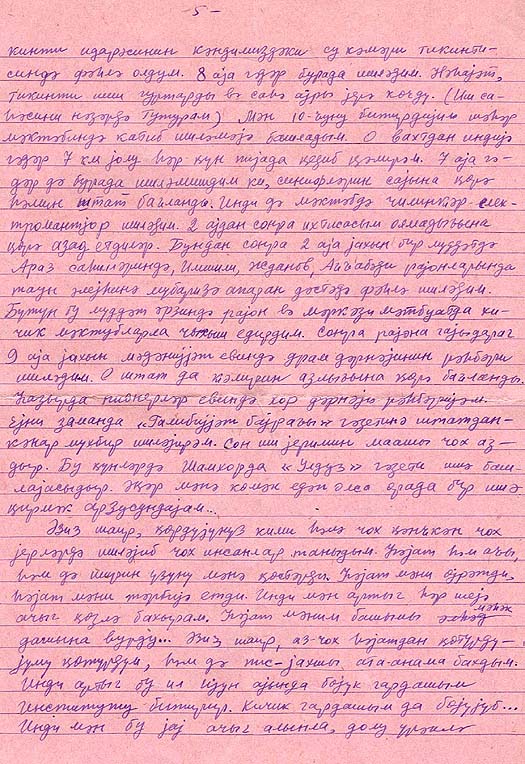 5 -
кинти идарәсинин кәндимиздәки су кәмәри тикинти-
синдә фәһлә олдум. 8 аја гәдәр бурада ишләдим. Нәһајәт,
тикинти иши гуртарды вә саһә ајры јерә көчдү. (Иш са-
һәсини нәзәрдә тутурам) Мән 10-ҹуну битирдијим шәһәр
мәктәбиндә катиб ишләмәјә башладым. О вахтдан индијә
гәдәр 7 км јолу һәр күн пијада кедиб кәлирәм. 7 аја гә-
дәр дә бурада ишләмишдим ки, синифләрин сајына көрә
һәмин штат бағланды. Инди дә мәктәбдә чилинкәр елек-
тромантјор ишләдим. 2 ајдан сонра ихтисасым олмадығына
көрә азад етдиләр. Бундан сонра 2 аја јахын бир мүддәтдә
Араз саһилләриндә, Имишли, Жданов, Ағҹабәди рајонларында
таун әлејһинә мүбаризә апаран дәстәдә фәһлә ишләдим.
Бүтүн бу мүддәт әрзиндә рајон вә мәркәзи мәтбуатда ки-
чик мәктубларла чыхыш едирдим. Сонра рајона гајыдараг
9 аја јахын мәдәнијјәт евиндә драм дәрнәјинин рәһбәри
ишләдим. О штат да кәлирин азлығына көрә бағланды.
Һазырда пионерләр евиндә хор дәрнәји рәһбәријәм.
Ејни заманда «Галибијјәт бајрағы» гәзетинә штатдан-
кәнар мүхбир ишләјирәм. Сон иш јеримин маашы чох аз-
дыр. Бу күнләрдә Шамхорда «Улдуз» гәзети ишә баш-
лајасыдыр. Әҝәр мәнә көмәк едән олса орада бир ишә
кирмәк арзусундајам...
Әзиз шаир, көрдүјүнүз кими һәлә чох кәнҹкән чох
јерләрдә ишләјиб чох инсанлар таныдым. Һәјат һәм аҹы,
һәм дә ширин үзүнү мәнә көстәрди. Һәјат мәни өјрәтди,
һәјат мәни тәрбијә етди. Инди мән артыг һәр шејә
ачыг көзлә бахырам. Һәјат мәним башымы мәһәк
дашына вурду... Әзиз шаир, аз-чох һәјатдан көтүрдү-
јүмү көтүрдүм, һәм дә пис-јахшы ата-анама бахдым.
Инди артыг бу ил ијун ајында бөјүк гардашым
Институту битирир. Кичик гардашым да бөјүјүб...
Инди мән бу јај ачыг алынла, долу үрәклә